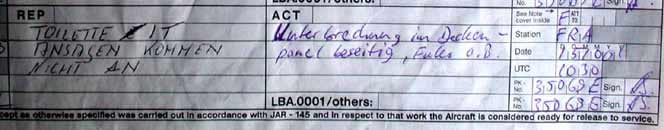 LBA.0001/others:
No.
Sign.
REP
ACT
See Note
cover inside
F
TOILETTE IT
Unterbrechung im Decken-
Station
FRA
ANSAGEN KOMMEN
panel beseitigt, Funkt. o.B.
Date
NICHT AN
UTC
1030
PK-
No.
35068E
Sign.
LBA.0001/others:
PK-
No.
35068E
Sign.
cept as otherwise specified was carried out in accordance with JAR - 145 and in respect to that work the Aircraft is considered ready for release to service.